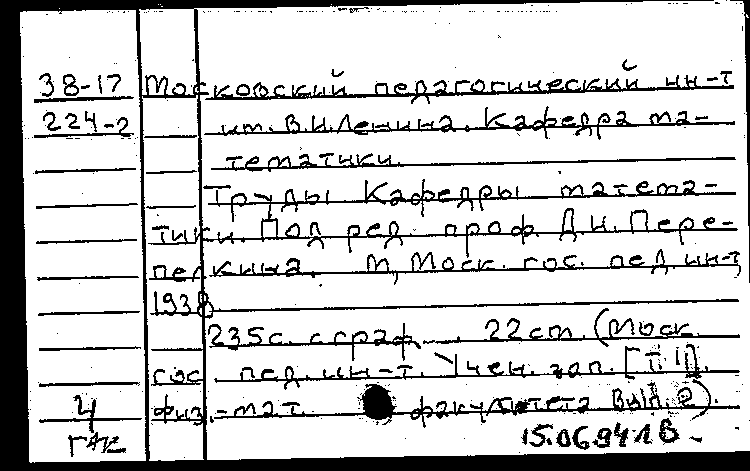 38-17 Московский педагогический ин-т
224-2 им. В.И. Ленина. Кафедра ма-
тематики.
Труды Кафедры матема-
тики. Под ред. проф. Д.И. Пере-
пелкина. М., Моск. гос. пед. ин-т,
1938
235с. с граф. 22см. (Моск.
гос. пед. ин-т. Учен. зап. [Т. II].
4 физ.-мат. факультета Вып. 2).
15.06.941